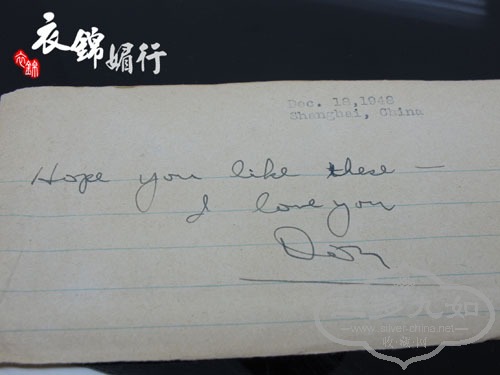 衣錦媚行
衣錦
Dec. 18,1948
Shanghai, China
Hope you like these —
I love you
九如
www.silver-china.net
收藏网